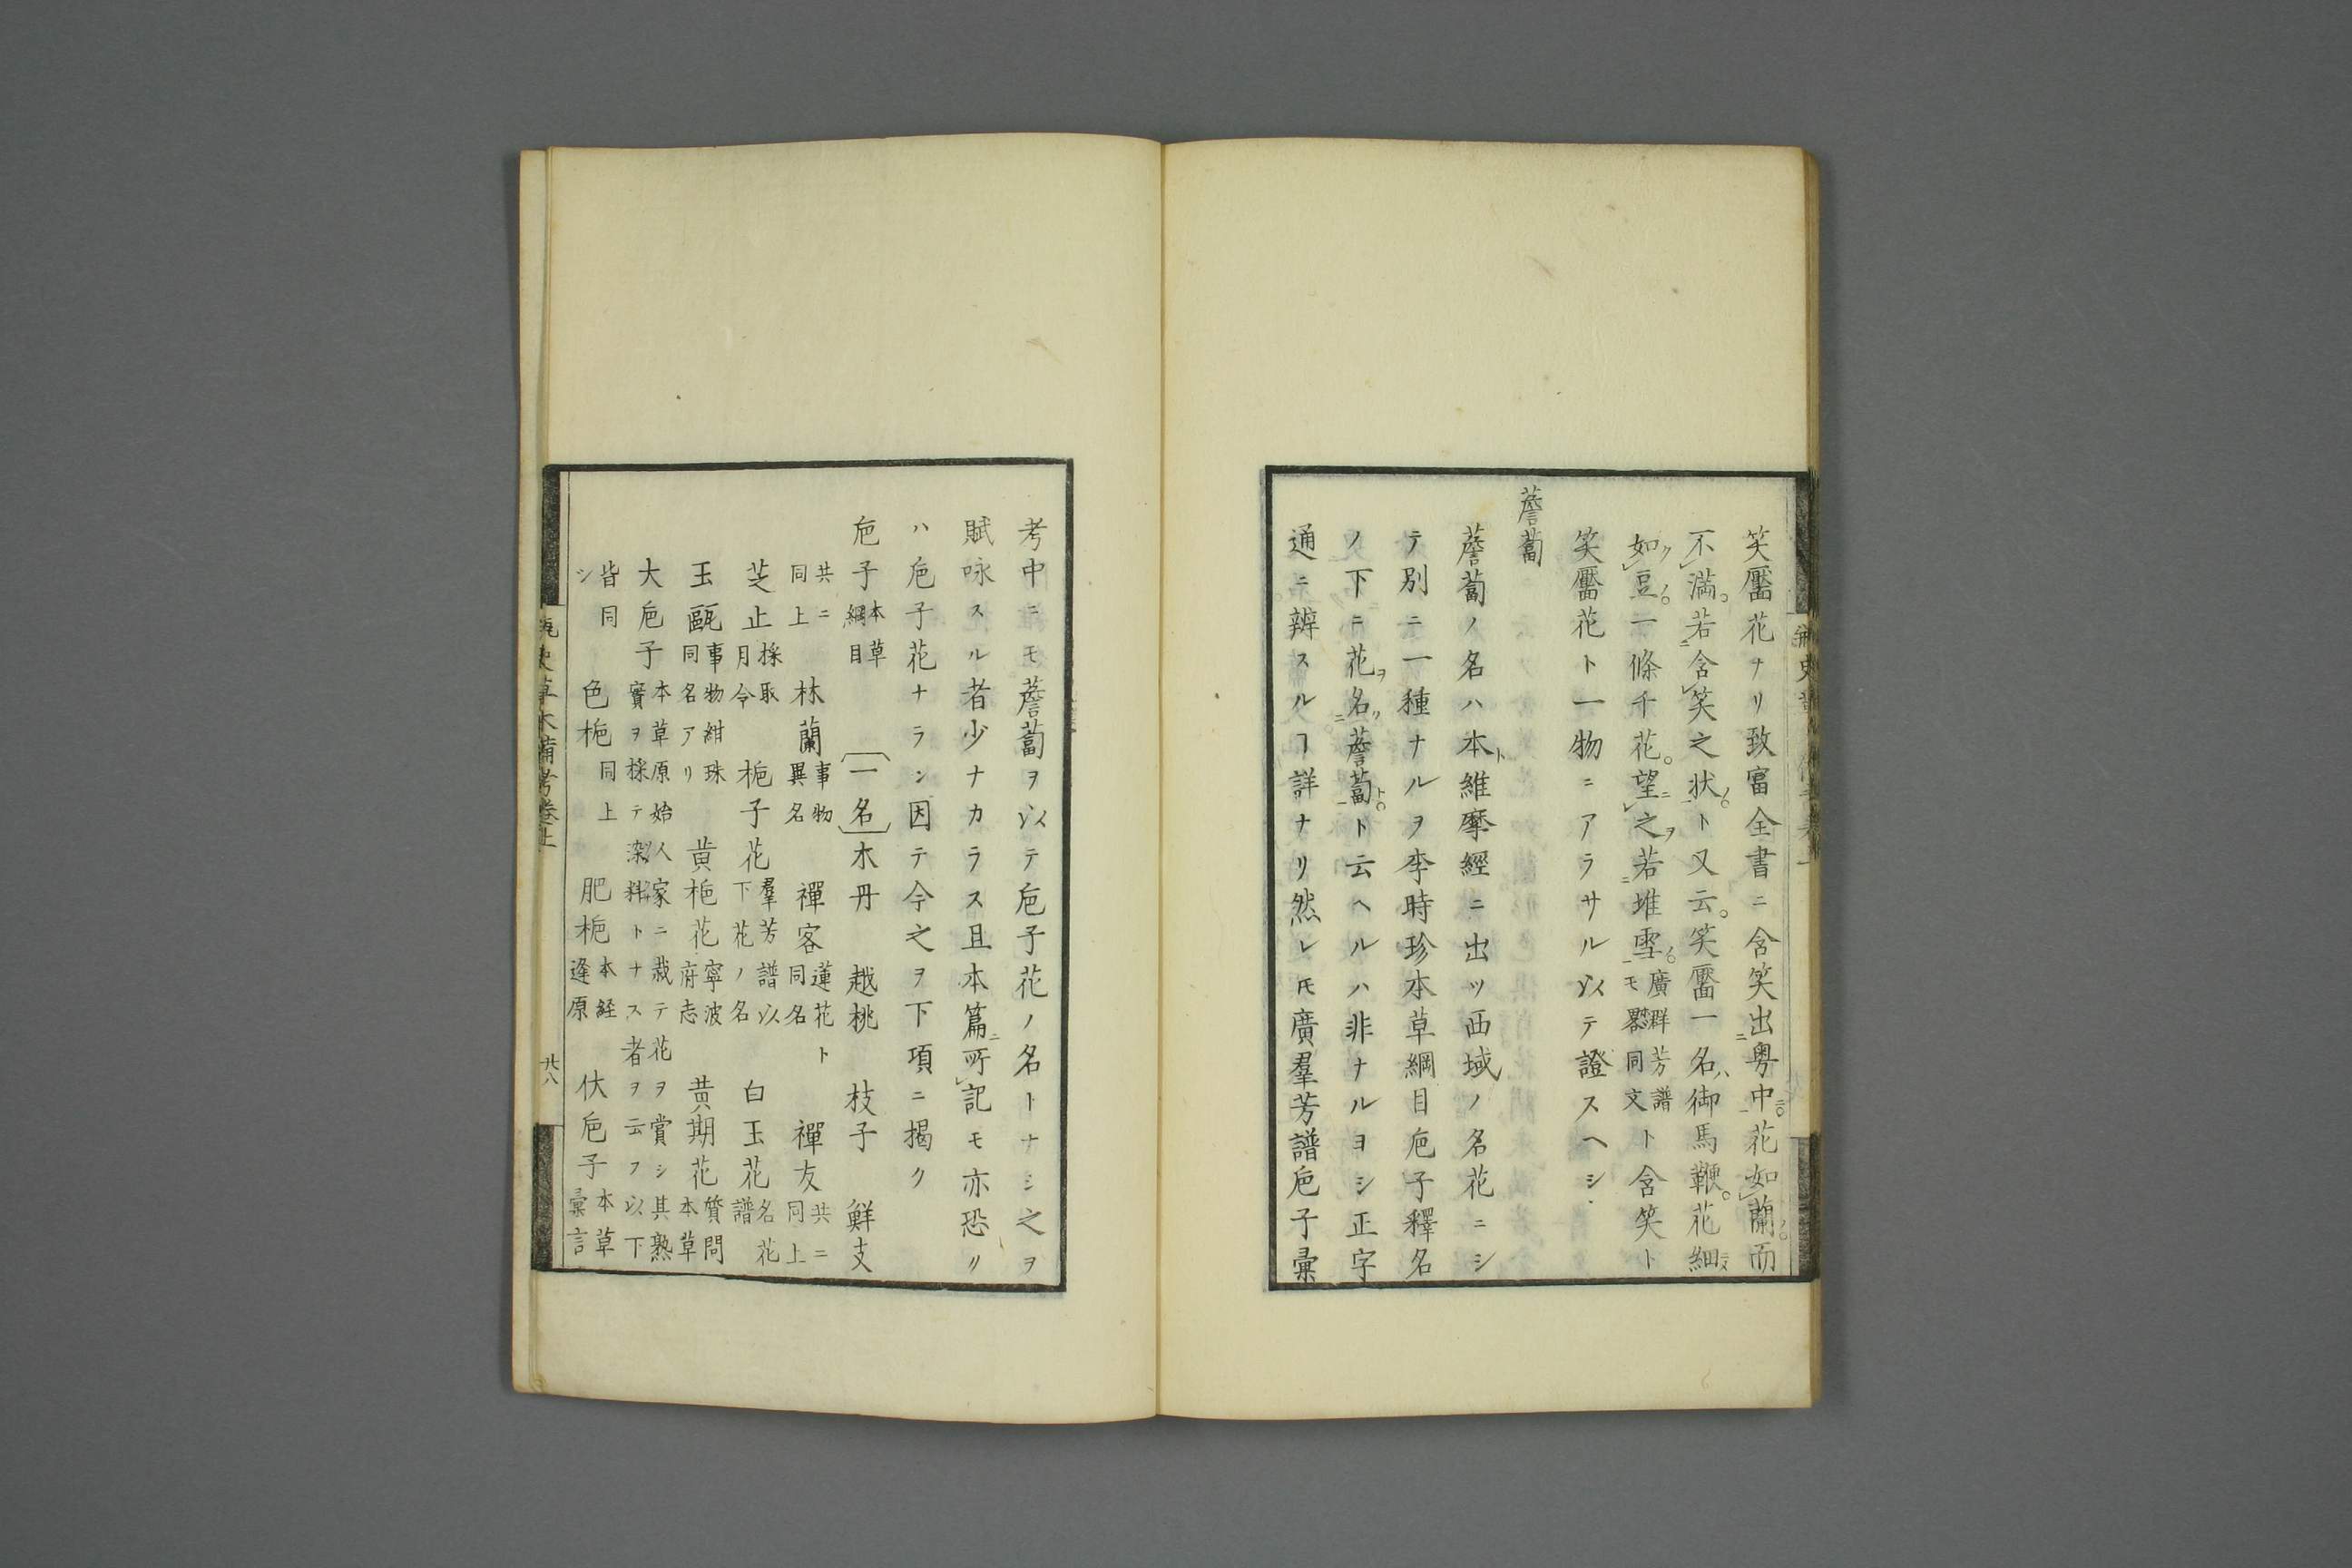 笑靨花ナリ致富全書ニ含笑出粤中花如蘭而
不満若含笑之状ト又云笑靨一名御馬鞭花細
如豆一條千花望之若堆雪廣群芳譜モ畧同文ト含笑ト
笑靨花ト一物ニアラサル以テ證スヘシ
薝蔔
薝蔔ノ名ハ本維摩經ニ出ツ西域ノ名花ニシ
テ別ニ一種ナルヲ李時珍本草綱目巵子釋名
ノ下ニ花名薝蔔ト云ヘルハ非ナルヨシ正字
通ニ辨スルヿ詳ナリ然レ𪜈廣羣芳譜巵子彙
考中ニモ薝蔔ヲ以テ巵子花ノ名トナシ之ヲ
賦咏スル者少ナカラス且本篇所記モ亦恐リ
ハ巵子花ナラン因テ今之ヲ下項ニ揭ク
巵子本草綱目一名木丹 越桃 枝子 鮮支
共ニ同上 林蘭事物異名 禪客蓮花ト同名 禪友共ニ同上
芝止採取月令 梔子花羣芳譜以下花ノ名 白玉花名花譜
玉甌事物紺珠同名アリ 黄梔花寧波府志 黄期花質問本草
大巵子本草原始人家ニ栽テ花ヲ賞シ其熟實ヲ採テ染料トナス者ヲ云フ以下
皆同シ 色梔同上 肥梔本経逢原 伏巵子本草彙言
瓶史草木備考卷上
廿八